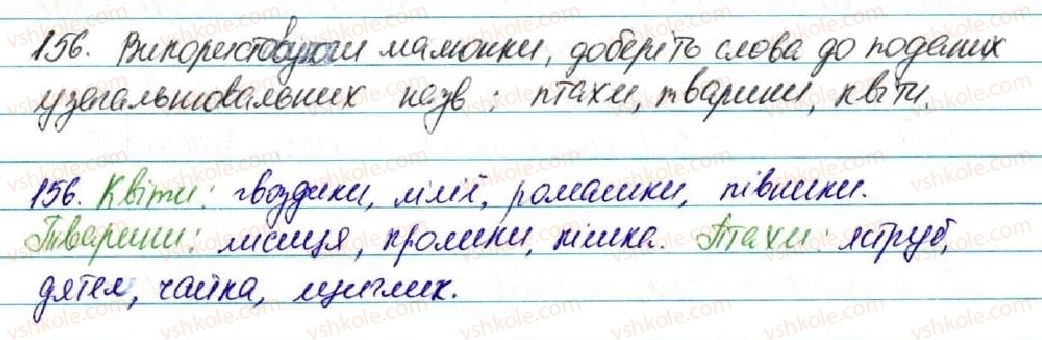 156. Використовуючи малюнки, доберіть слова до поданих
узагальнювальних назв: птахи, тварини, квіти.
156. Квіти: гвоздики, лілії, ромашки, півники.
Тварини: лисиця, кролики, кішка. Птахи: яструб,
дятел, чайка, щиглик.